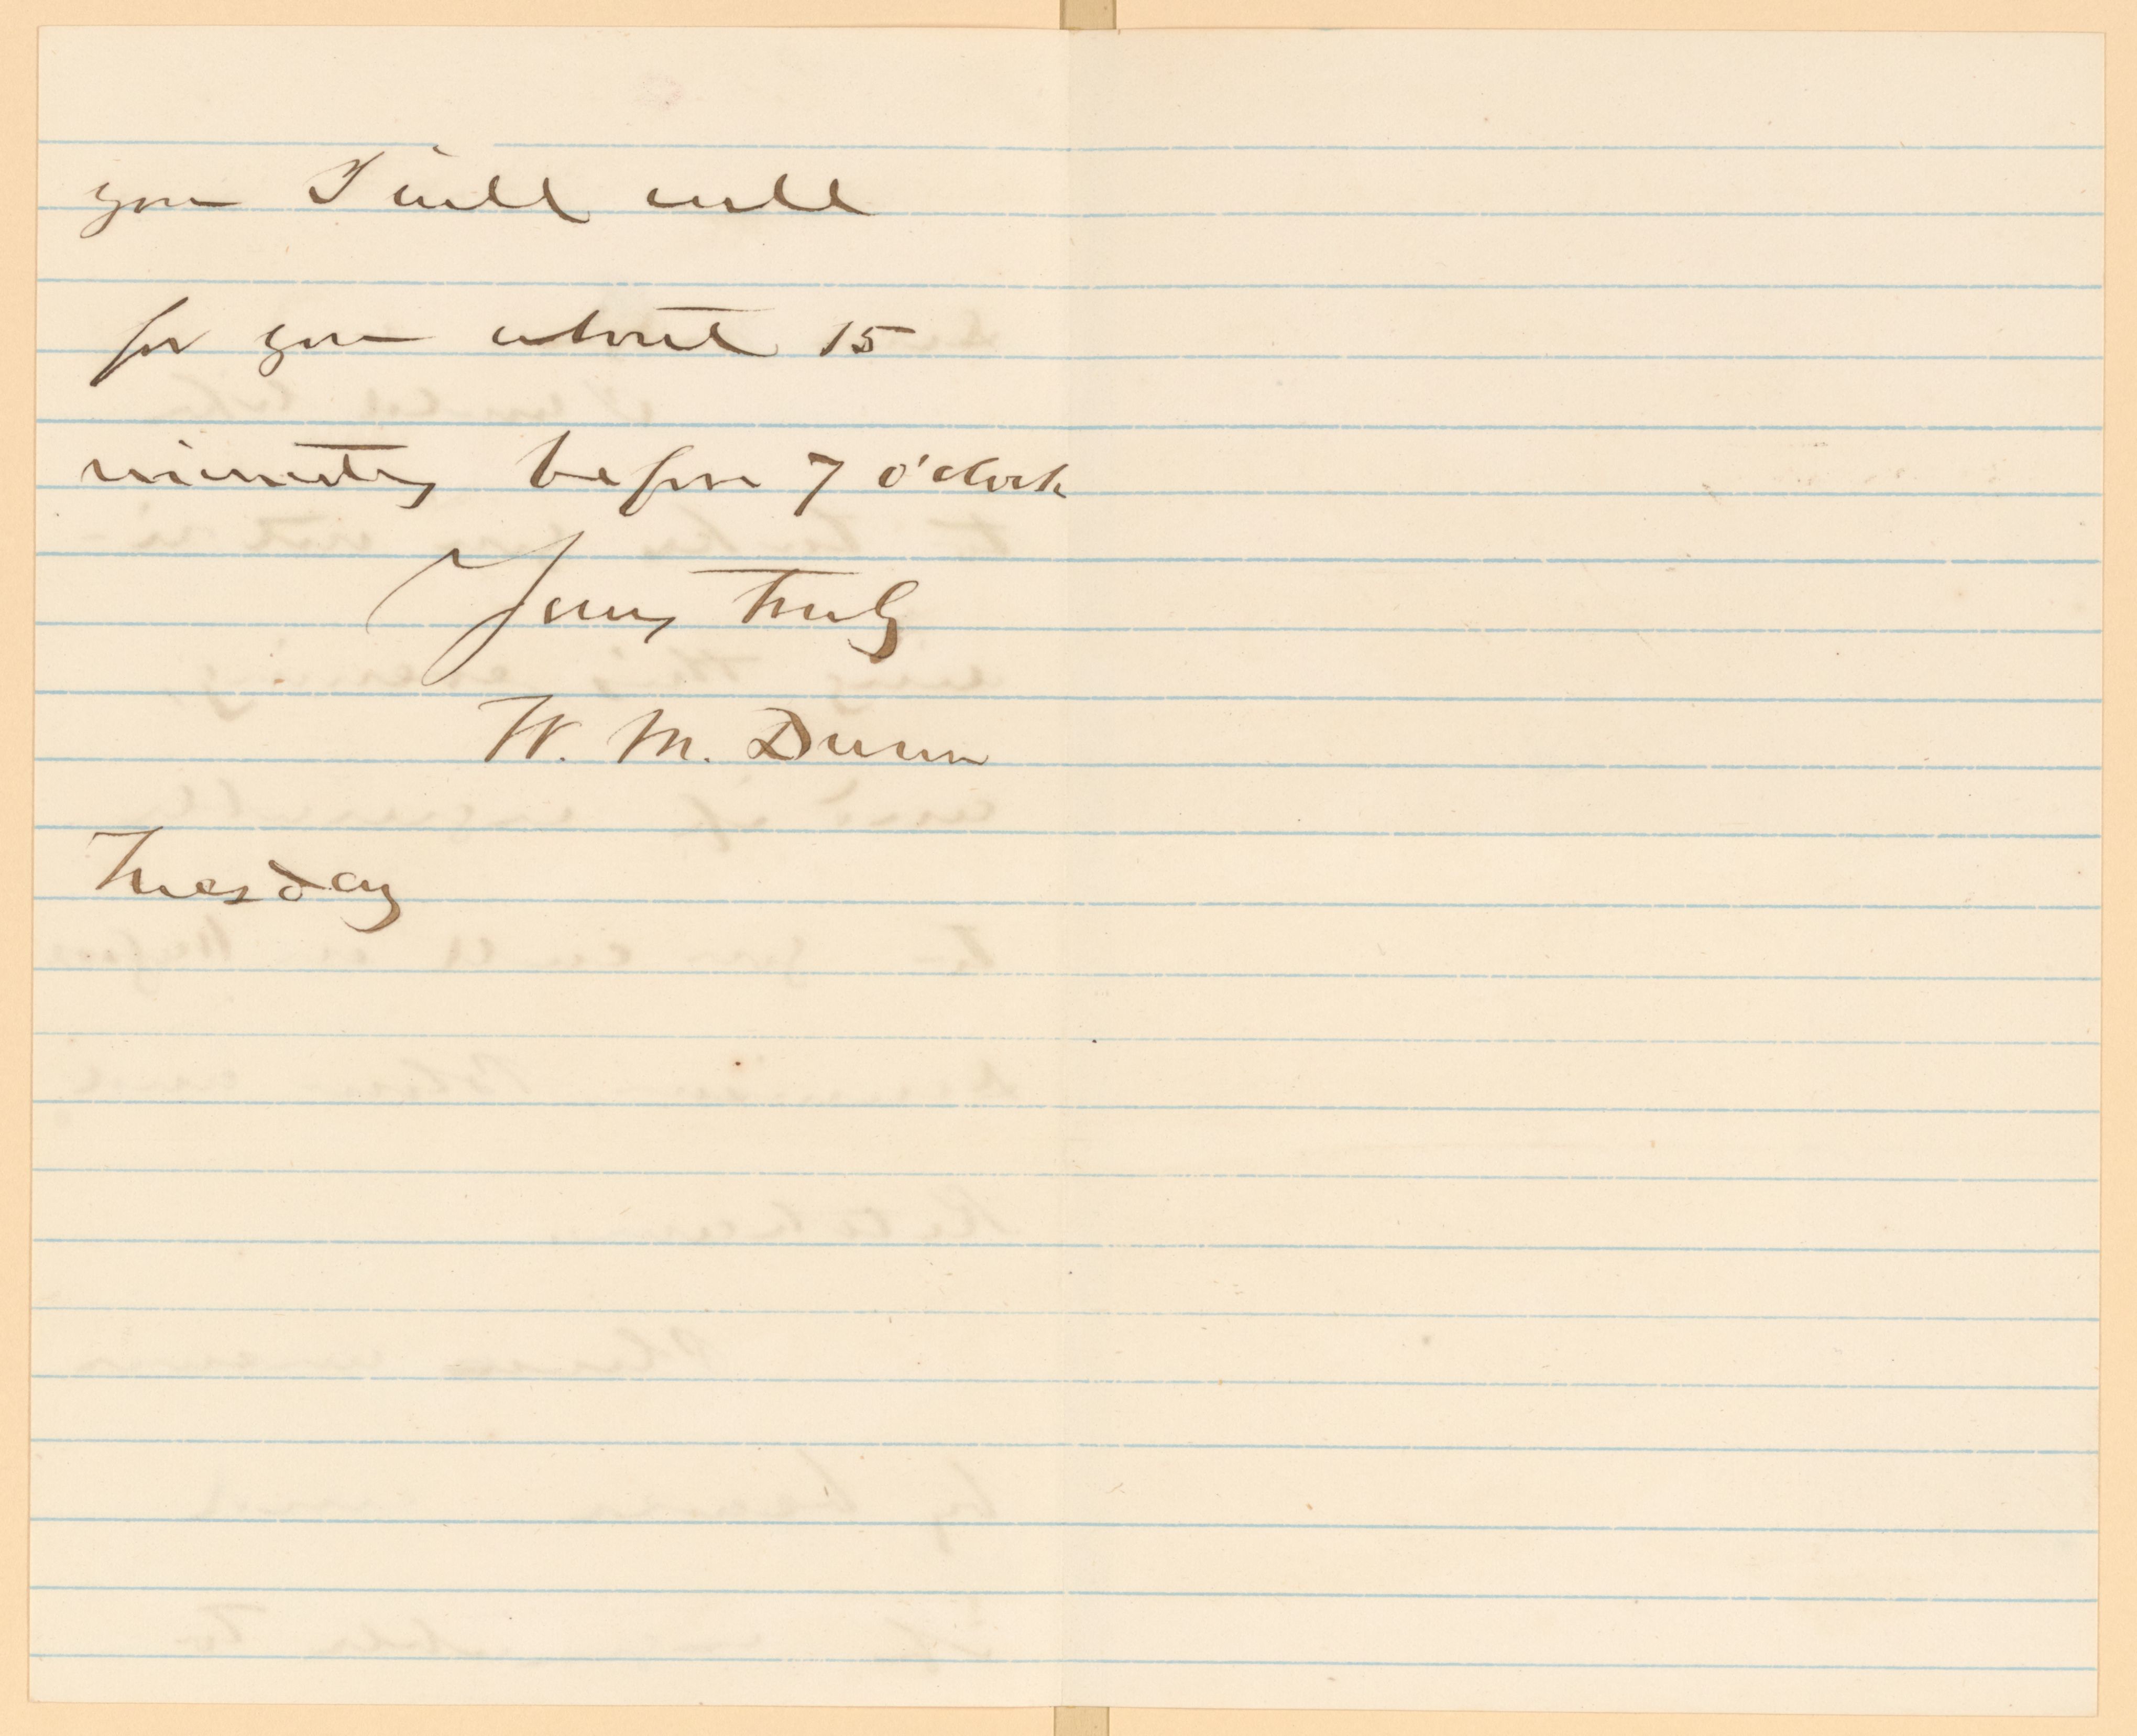 you I will call
for you about 15
minutes before 7 o'clock
Yours truly
W. M. Dunn
Tuesday